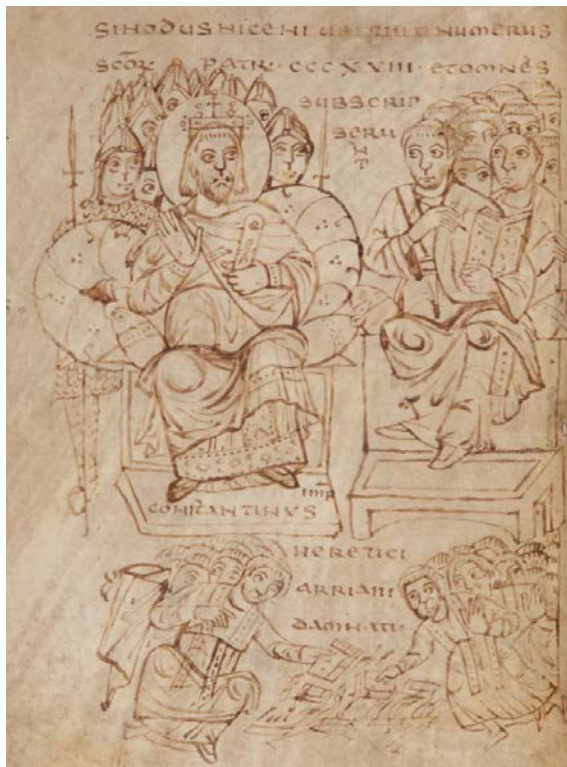 SINODUS NICENI NUMERUS
SCŌR· PATR· CCCXVIII· ET OMNES
SUBSCRIP
SERU
NT
IMP
CONSTANTINUS
HERETICI
ARRIANI
DAMNATI·